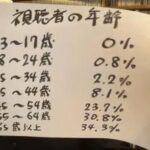 視聴者の年齢
3〜17歳 0%
8〜24歳 0.8%
5〜34歳 2.2%
5〜44歳 8.1%
5〜54歳 23.7%
5〜64歳 30.8%
5歳以上 34.3%